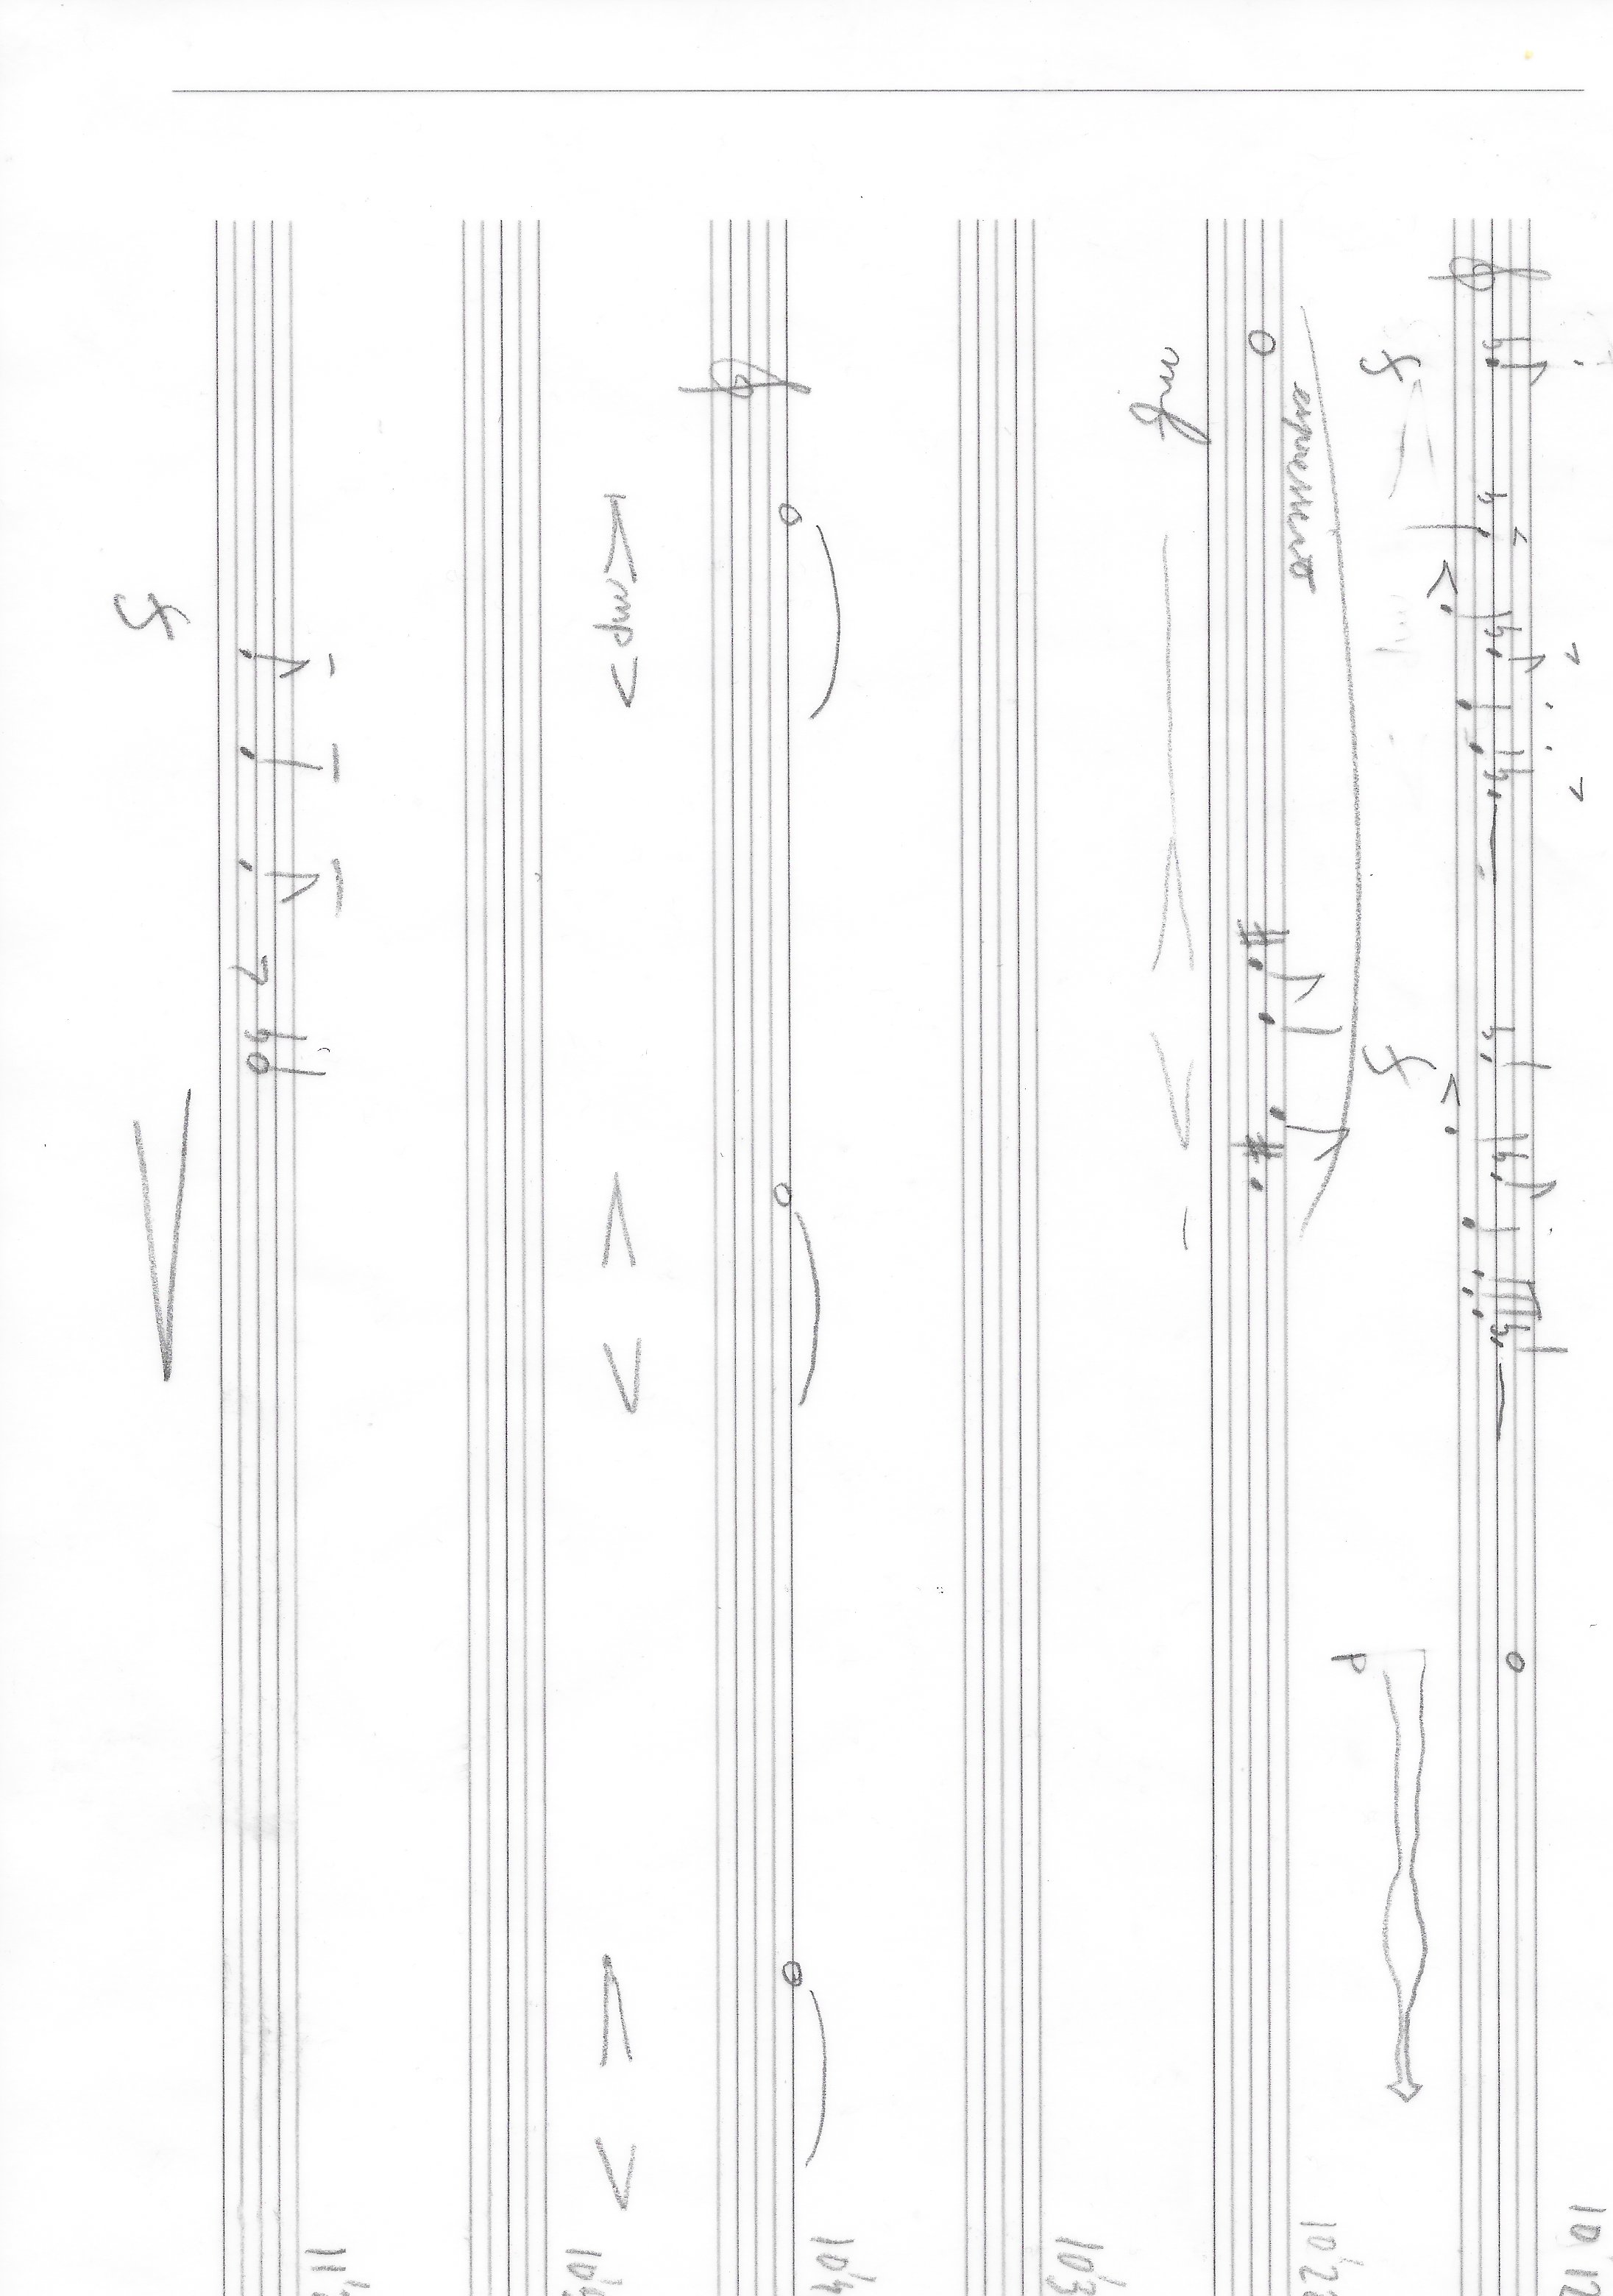 10'12
f mp f
p
10'22
espressivo
mf
10'3
10'4
mp
10'5
11'
f